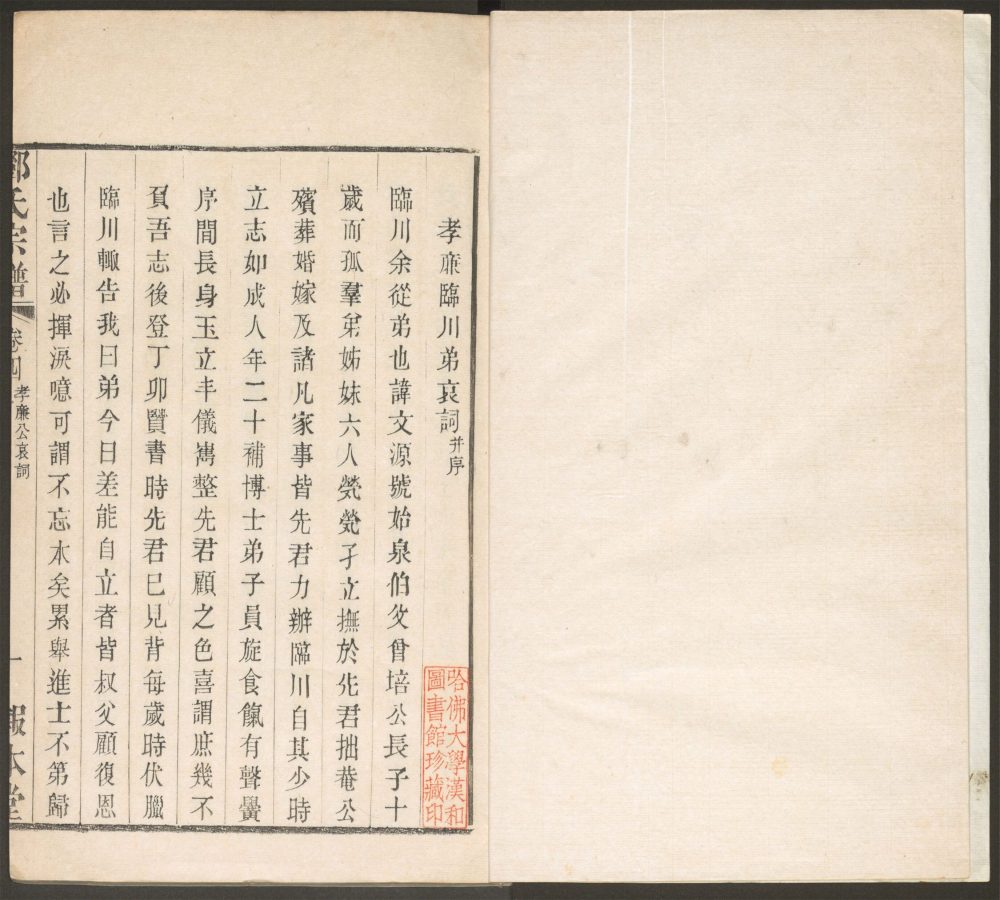 孝亷臨川弟哀詞并序
臨川余從弟也諱文源號始泉伯父曾培公長子十
歲而孤羣弟姊妹六人煢煢孑立撫於先君拙菴公
殯葬婚嫁及諸凡家事皆先君力辦臨川自其少時
立志如成人年二十補博士弟子員旋食餼有聲黌
序間長身玉立丰儀嶲整先君顧之色喜謂庶幾不
負吾志後登丁卯賢書時先君已見背每歲時伏臘
臨川輙告我曰弟今日差能自立者皆叔父顧復恩
也言之必揮淚噫可謂不忘本矣累舉進士不第歸
氏宗譜
卷四
孝廉公哀詞
一
報本堂
哈佛大學漢和
圖書館珍藏印